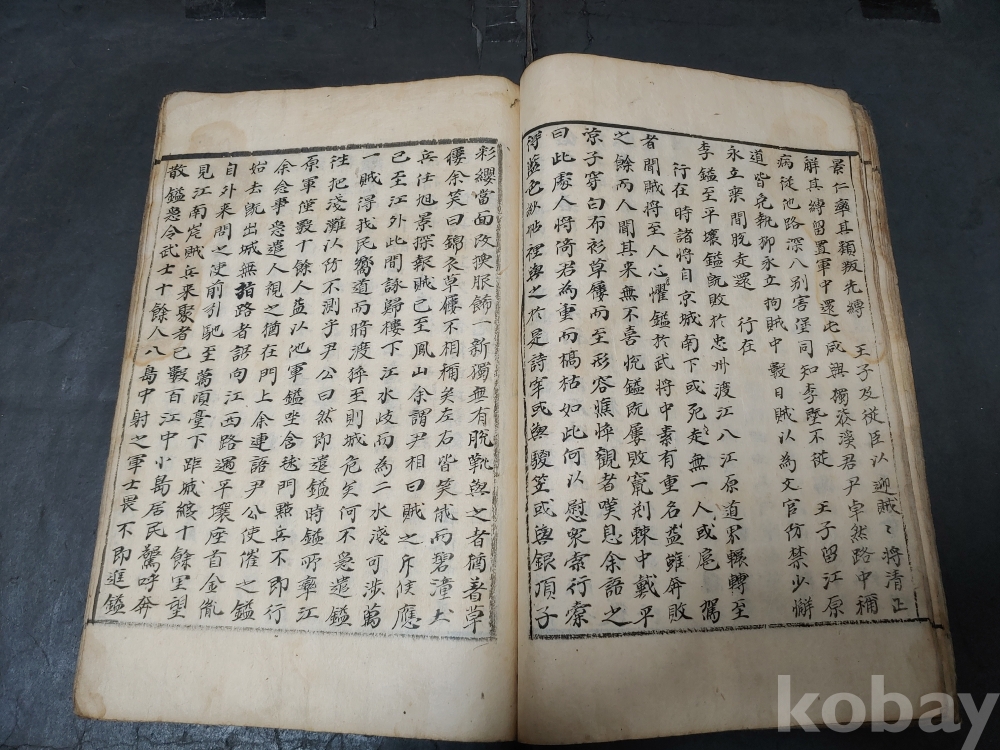 景仁率其類叛先縛 王子及從臣以迎賊〻將清正
解其縛留置軍中還屯咸興獨漆溪君尹卓然路中稱
病從他路深入別害堡同知李墍不從 王子留江原
道皆免執柳永立拘賊中數日賊以為文官防禁少懈
永立乘間脫走還 行在
李鎰至平壤鎰旣敗於忠州渡江入江原道界輾轉至
行在時諸將自京城南下或死走無一人或扈 駕
者聞賊將至人心懼鎰於武將中素有重名益雖奔敗
之餘而人聞其来無不喜悅鎰旣屢敗竄荊棘中戴平
凉子穿白布衫草屨而至形容憔悴觀者嘆息余語之
曰此處人將倚君為重而槁枯如此何以慰衆索行橐
得藍色紗帖裡與之於是諸宰或與騣笠或與銀頂子
彩纓當面改換服飾一新獨無有脫靴與之者猶着草
屨余笑曰錦衣草屨不相稱矣左右皆笑俄而碧潼土
兵任旭景探報賊已至鳳山余謂尹相曰賊之斥候應
已至江外此間詠歸樓下江水歧而為二水淺可涉萬
一賊得我民嚮道而暗渡猝至則城危矣何不急遣鎰
往把淺灘以防不測乎尹公曰然即遣鎰時鎰所率江
原軍僅數十餘人益以他軍鎰坐含毬門點兵不即行
余念事急遣人視之猶在門上余連語尹公使催之鎰
始去旣出城無指路者誤向江西路遇平壤座首金胤
自外来問之使前引馳至萬頃臺下距城纔十餘里望
見江南岸賊兵来聚者已數百江中小島居民驚呼奔
散鎰急令武士十餘人入島中射之軍士畏不即進鎰
kobay